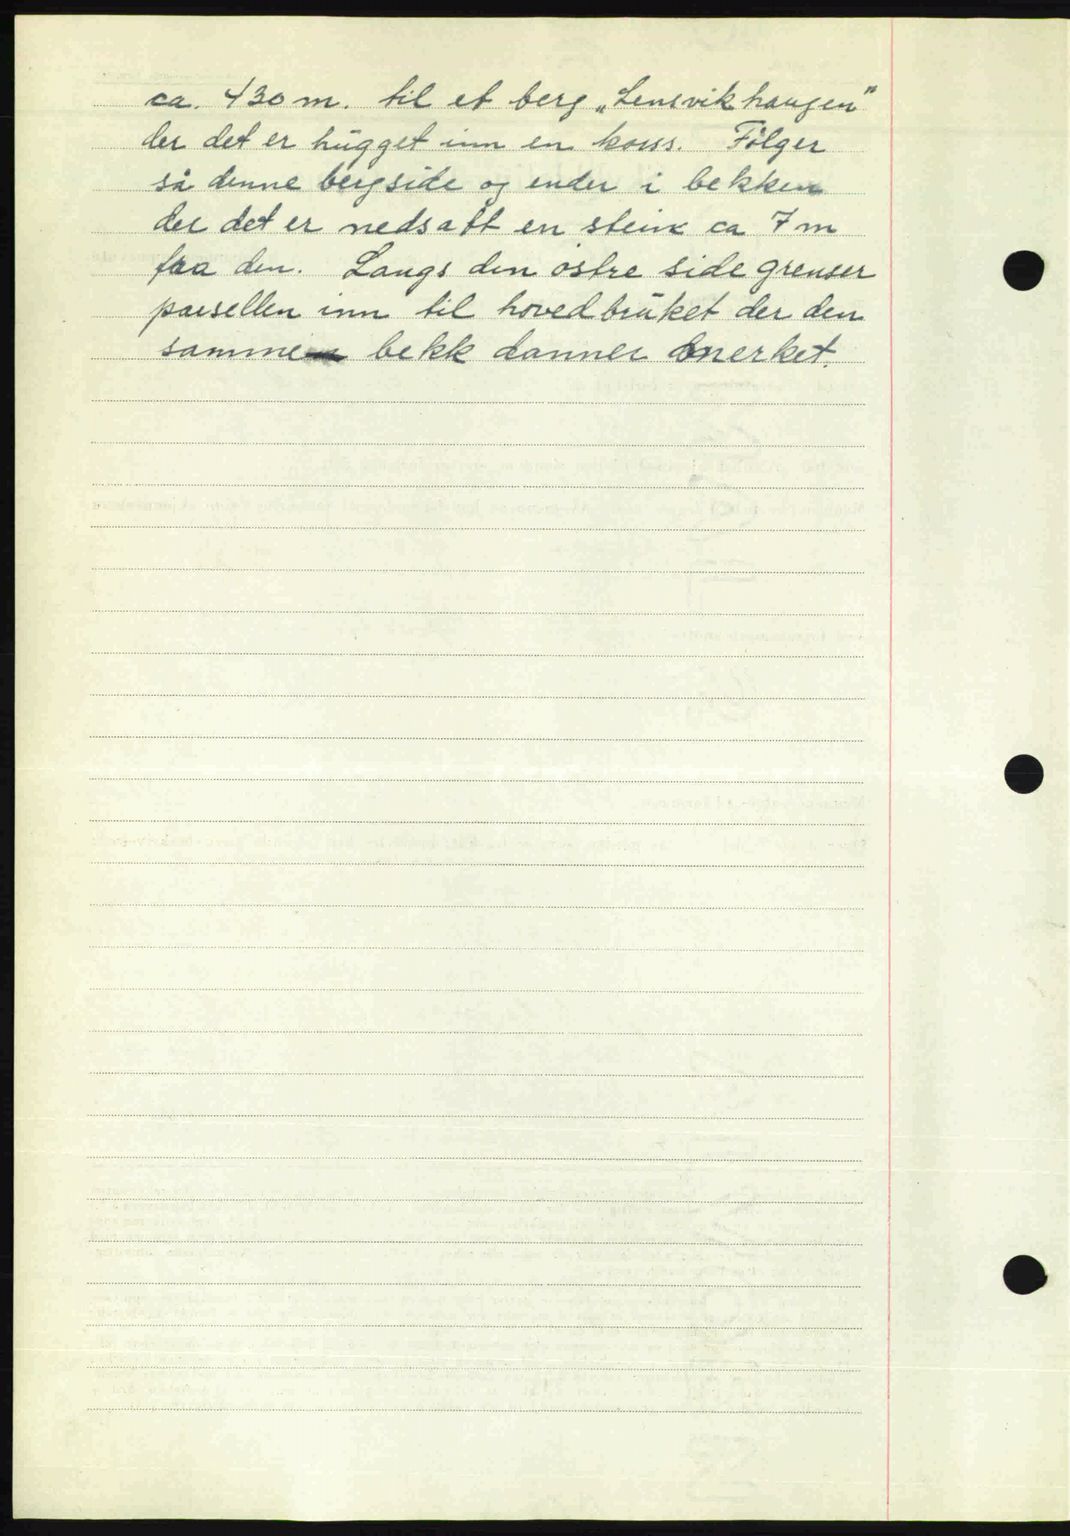 ca. 430 m. til et berg „Lensvikhaugen"
der det er hugget inn en kors. Følger
så denne bergside og ender i bekken
der det er nedsatt en stein ca 7 m
fra den. Langs den østre side grenser
parsellen inn til hovedbruket der den
samme bekk danner merket.